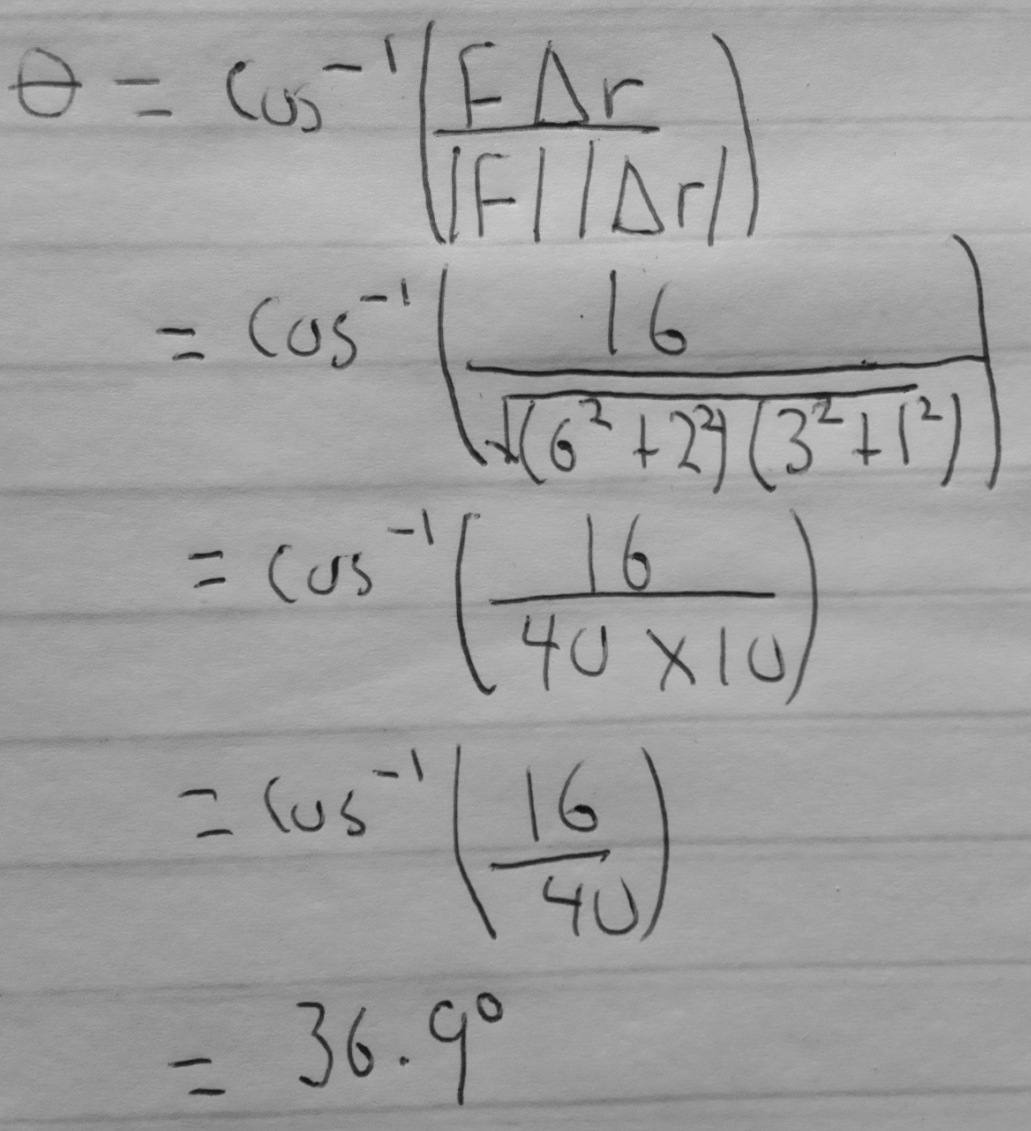 θ = cos⁻¹(FΔr / |F||Δr|)
= cos⁻¹(16 / √(6² + 2²)(3² + 1²))
= cos⁻¹(16 / 40 × 10)
= cos⁻¹(16 / 40)
= 36.9°